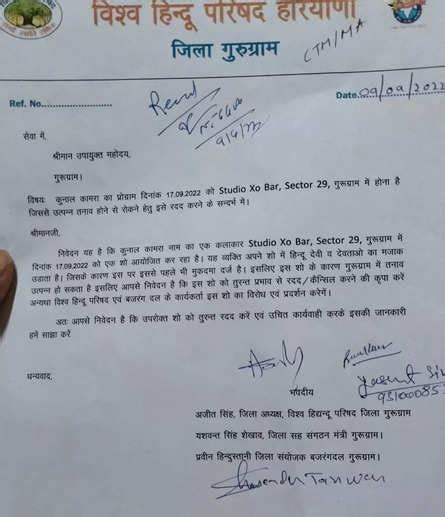 विश्व हिन्दू परिषद हरियाणा
जिला गुरुग्राम
CTM/MA
Ref. No.
Date 09/09/2022
Recd
9/9/22
सेवा में,
श्रीमान उपायुक्त महोदय,
गुरूग्राम।
विषय: कुनाल कामरा का प्रोग्राम दिनांक 17.09.2022 को Studio Xo Bar, Sector 29, गुरूग्राम में होना है
जिससे उत्पन्न तनाव होने से रोकने हेतु इसे रदद करने के सन्दर्भ में।
श्रीमानजी,
निवेदन यह है कि कुनाल कामरा नाम का एक कलाकार Studio Xo Bar, Sector 29, गुरूग्राम में
दिनांक 17.09.2022 को एक शो आयोजित कर रहा है। यह व्यक्ति अपने शो में हिन्दू देवी व देवताओ का मजाक
उडाता है। जिसके कारण इस पर इससे पहले भी मुकदमा दर्ज है। इसलिए इस शो के कारण गुरूग्राम में तनाव
उत्पन्न हो सकता है इसलिए आपसे निवेदन है कि इस शो को तुरन्त प्रभाव से रदद/कैन्सिल करने की कृपा करें
अन्यथा विश्व हिन्दू परिषद एवं बजरंग दल के कार्यकर्ता इस शो का विरोध एवं प्रदर्शन करेगें।
अतः आपसे निवेदन है कि उपरोक्त शो को तुरन्त रदद करें एवं उचित कार्यवाही करके इसकी जानकारी
हमे साझा करें
धन्यवाद,
भवदीय
अजीत सिंह, जिला अध्यक्ष, विश्व हिद्यन्दू परिषद जिला गुरूग्राम
यशवन्त सिंह शेखाव, जिला सह संगठन मंत्री गुरूग्राम।
प्रवीन हिन्दुस्तानी जिला संयोजक बजरंगदल गुरूग्राम।
Tanwar